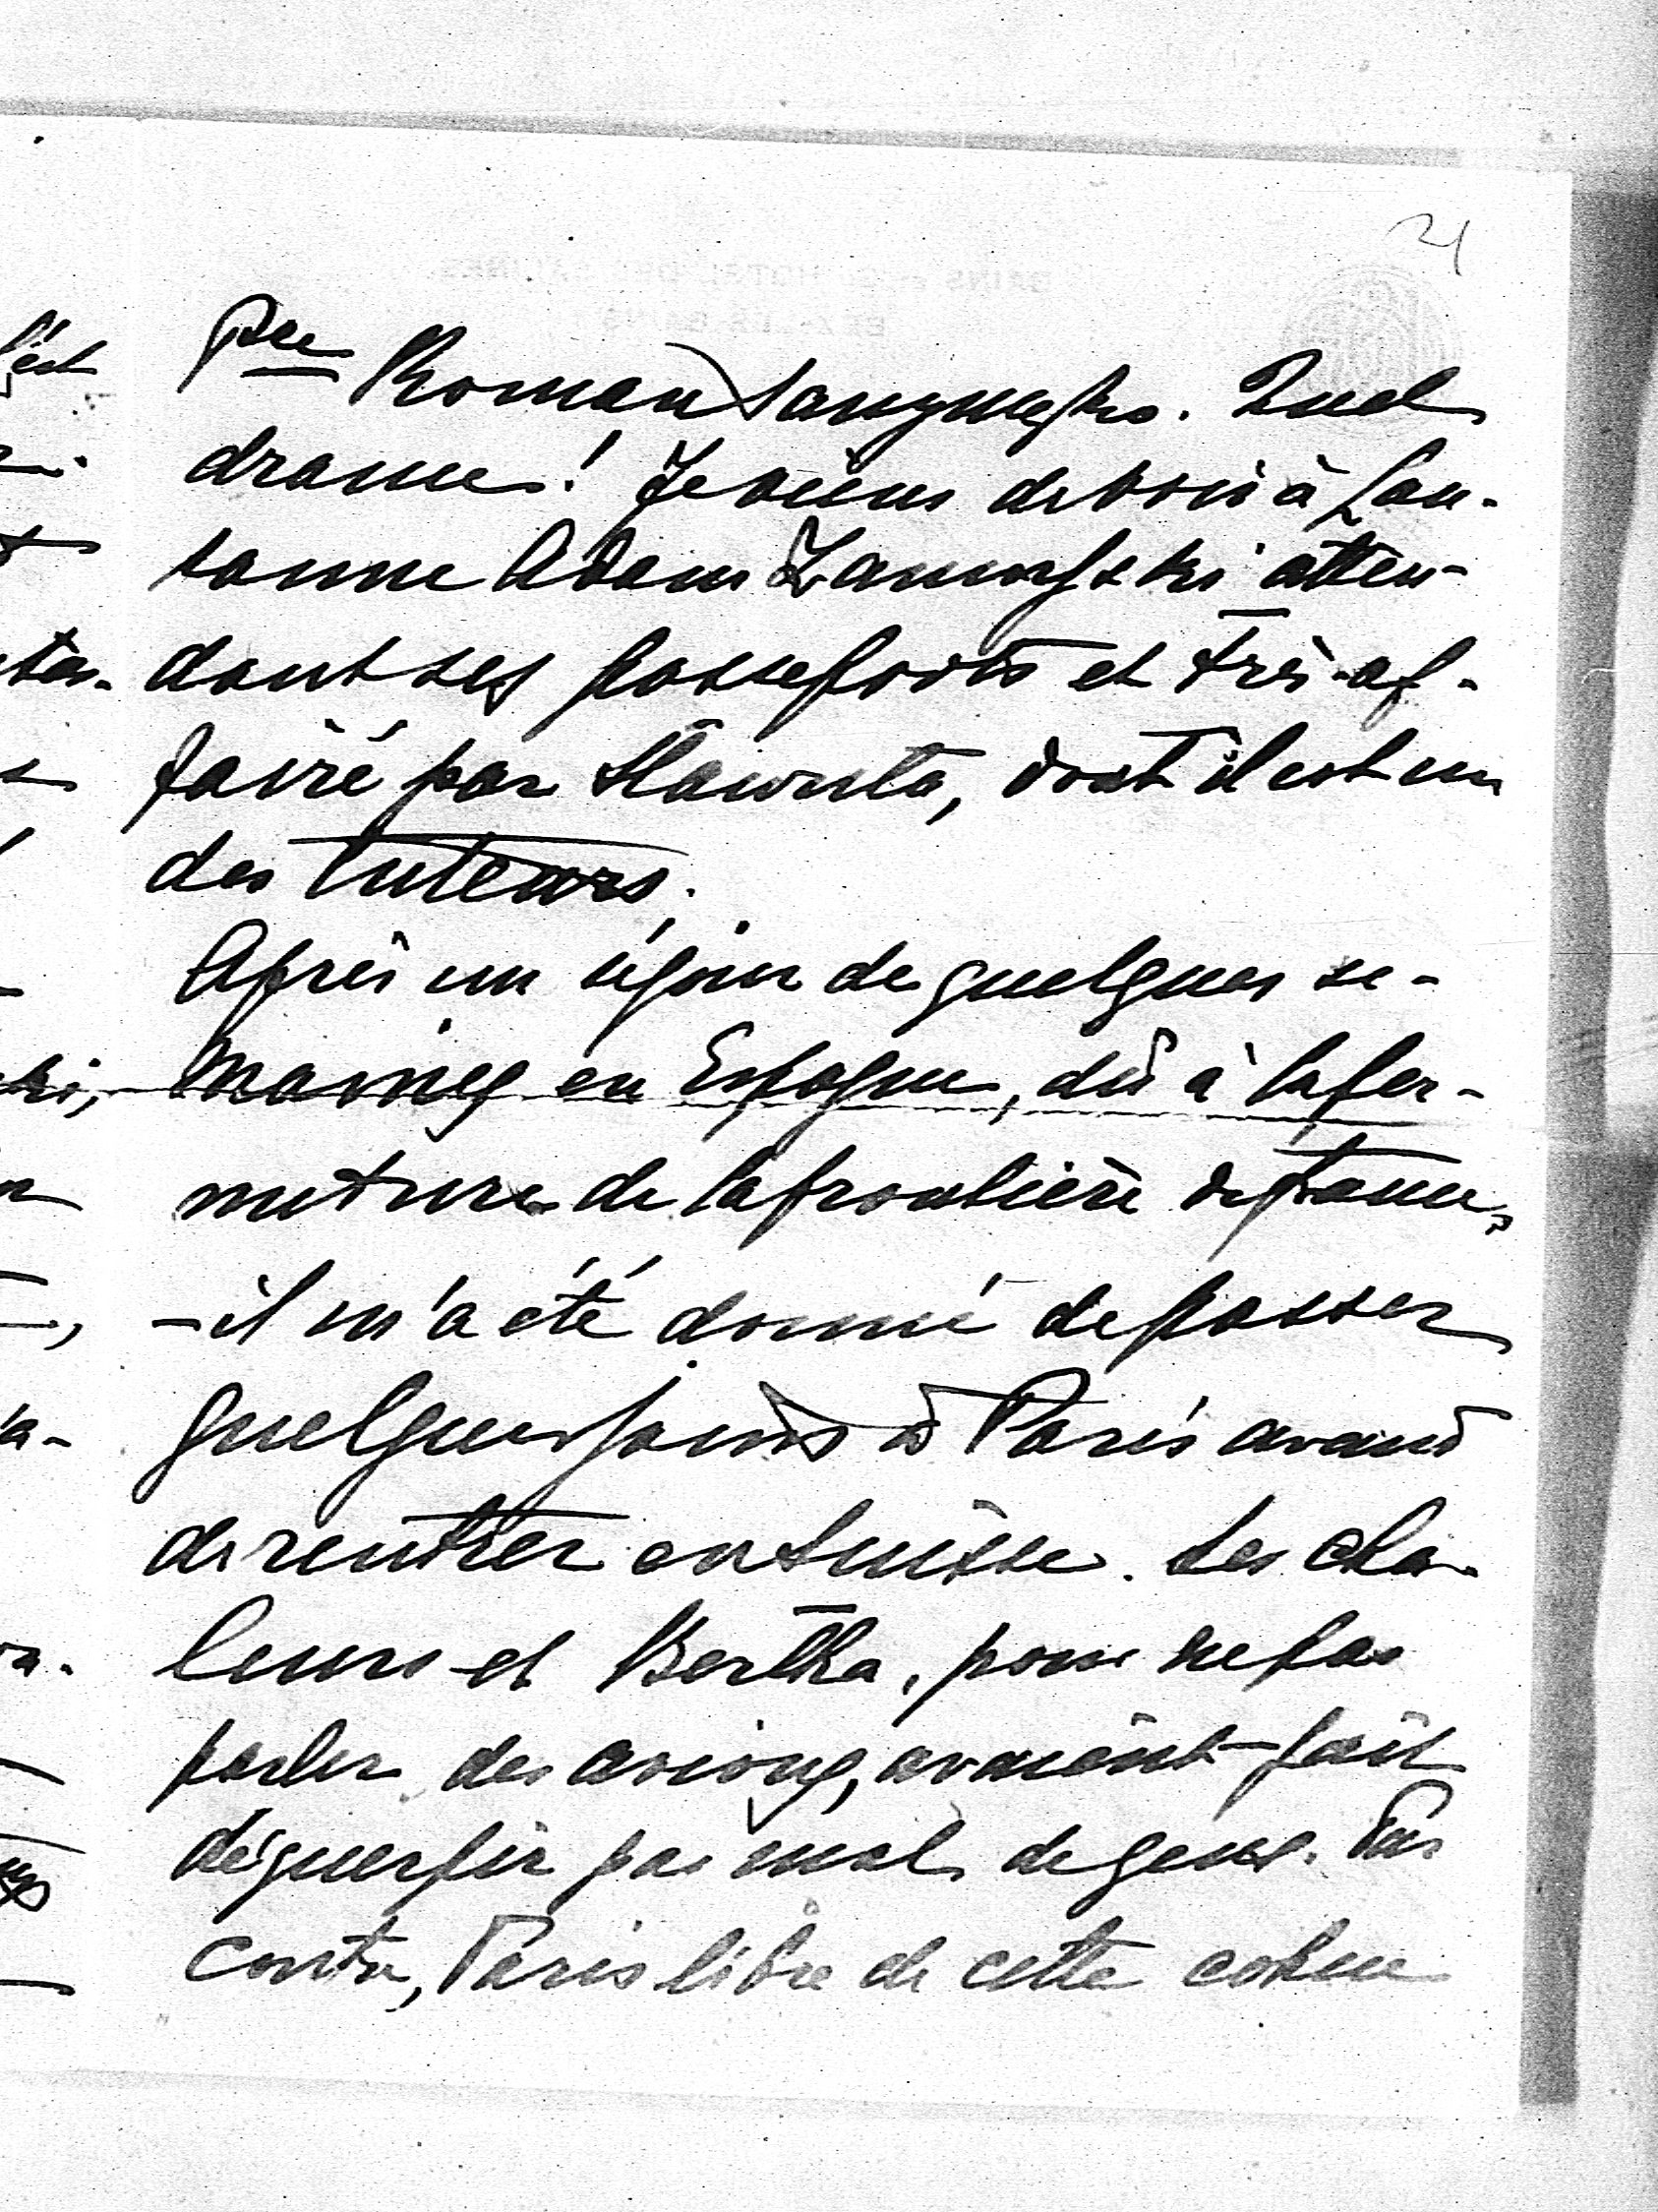 21
Pce Roman Sanguszko. Quel
drame! Je viens de voir à Lau-
sanne Adam Zamoyski atten-
dant ses passeports et très af-
fairé par Slawuta, dont il est un
des tuteurs.
Après un séjour de quelques se-
maines en Espagne, dû à la fer-
meture de la frontière de France,
- il m'a été donné de passer
quelques jours à Paris avant
de rentrer en Suisse. Les cha-
leurs et Bertha, pour ne pas
parler des avions, avaient fait
déguerpir pas mal de gens. Par
contre, Paris libre de cette cohue